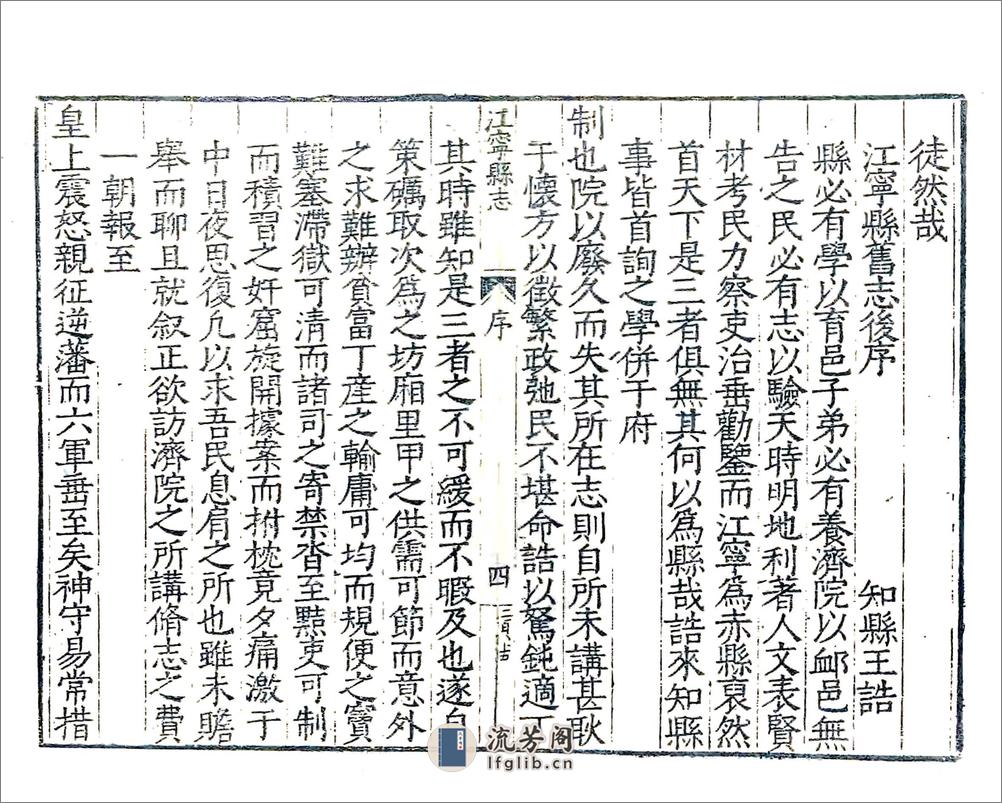 徒然哉
江寧縣舊志後序
知縣王誥
縣必有學以育邑子弟必有養濟院以䘏邑無
告之民必有志以驗天時明地利著人文表賢
材考民力察吏治垂勸鑒而江寧為赤縣裒然
首天下是三者俱無其何以為縣哉誥來知縣
事皆首詢之學併于府
制也院以廢久而失其所在志則自所未講甚耿
于懷方以徵繁政弛民不堪命誥以駑鈍適丁
江寧縣志
序
四
其時雖知是三者之不可緩而不暇及也遂自
策礪取次為之坊廂里甲之供需可節而意外
之求難辦貧富丁產之輸庸可均而規便之竇
難塞滯獄可清而諸司之寄禁沓至黠吏可制
而積習之奸窟旋開據案而拊枕竟夕痛激于
中日夜思復凢以求吾民息肩之所也雖未贍
舉而聊且就叙正欲訪濟院之所講脩志之費
一朝報至
皇上震怒親征逆藩而六軍垂至矣神守易常措
流芳阁
lfglib.cn